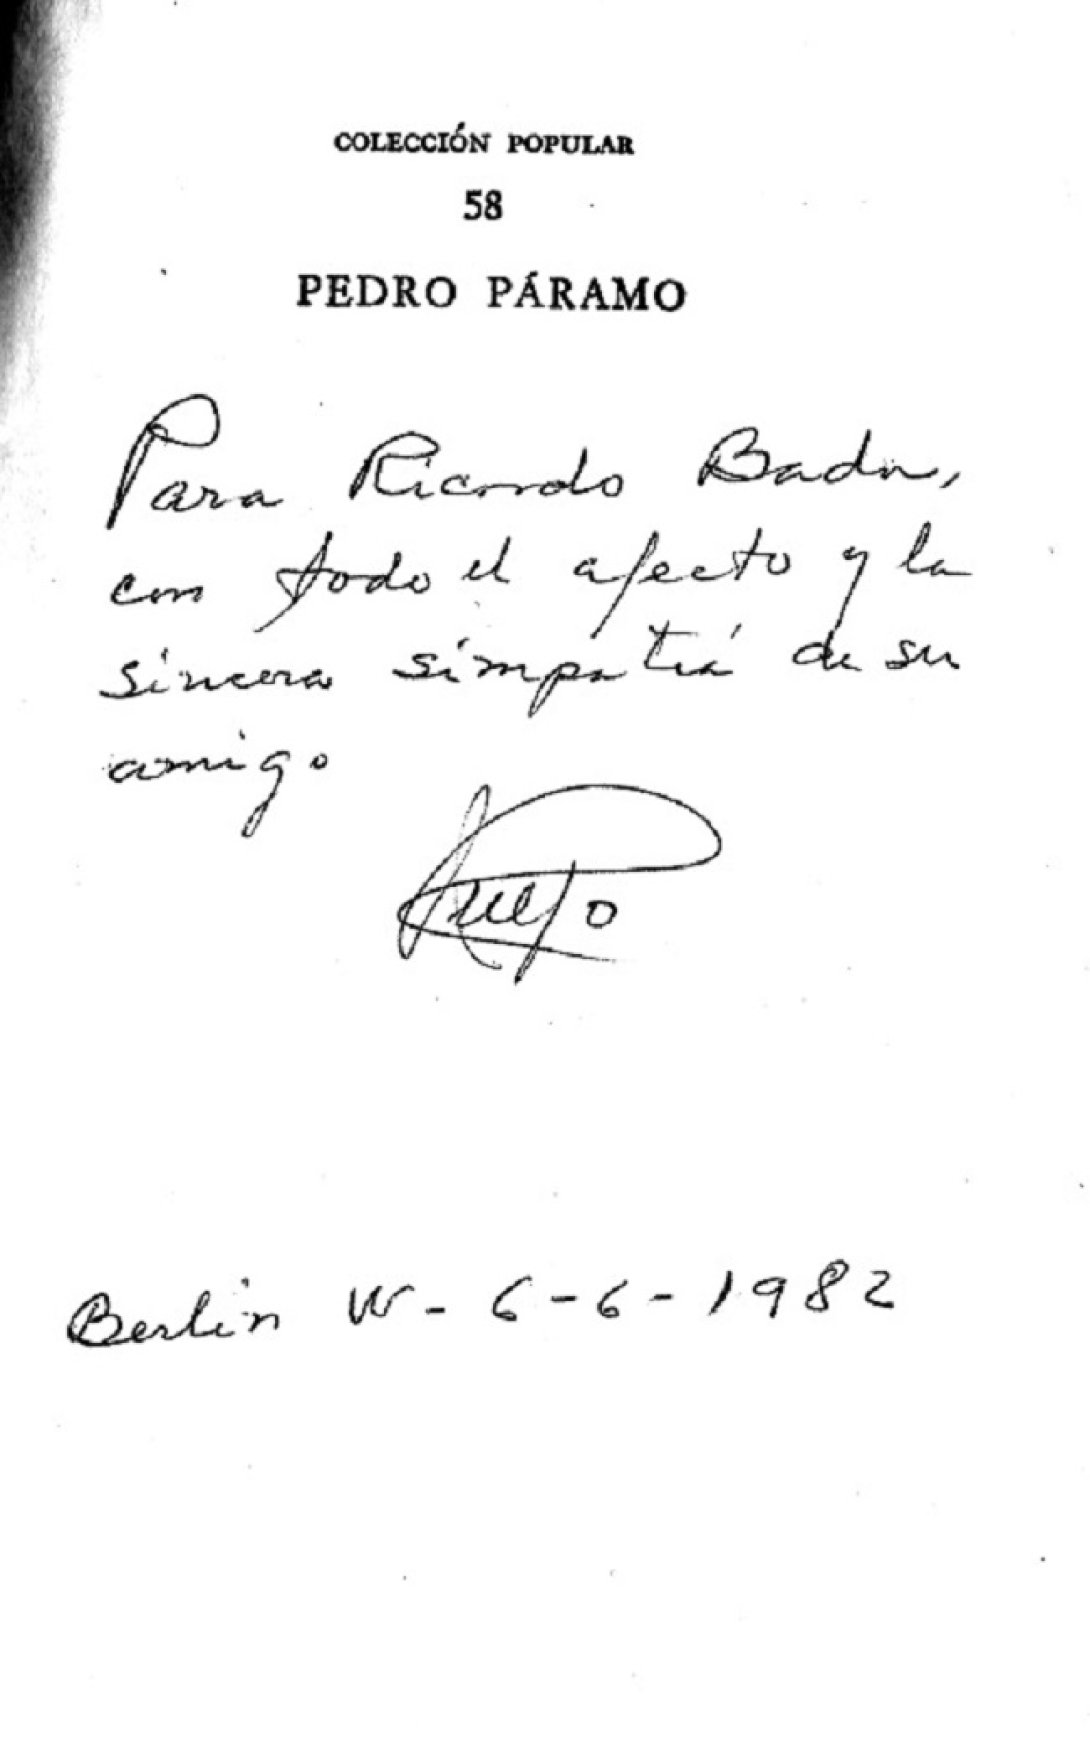 COLECCIÓN POPULAR
58
PEDRO PÁRAMO
Para Ricardo Bada,
con todo el afecto y la
sincera simpatía de su
amigo
Berlin W - 6 - 6 - 1982